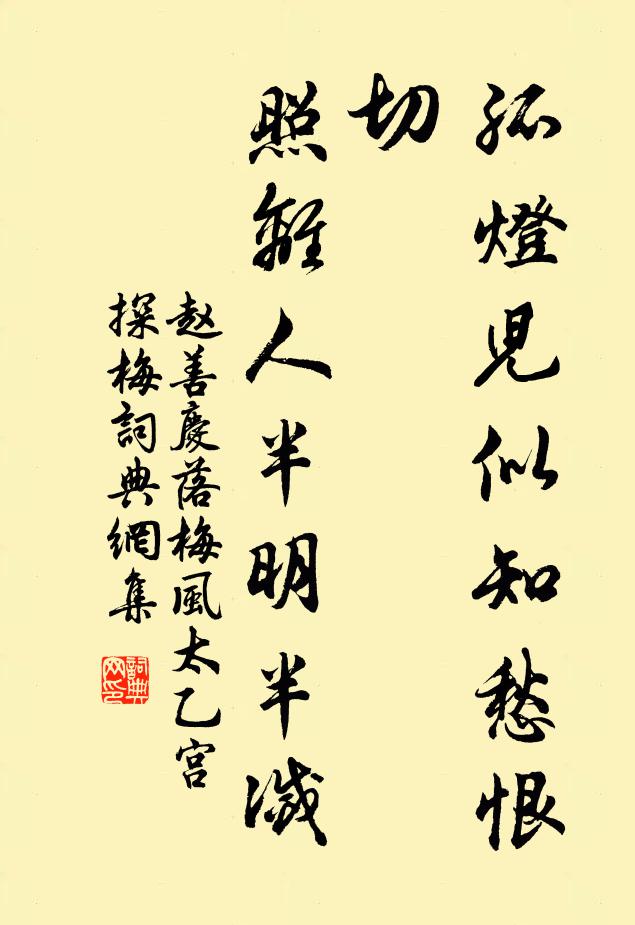 孤燈兒似知愁恨
切
照離人半明半滅
赵善慶落梅風太乙宫
探梅詞典網集
詞典網印